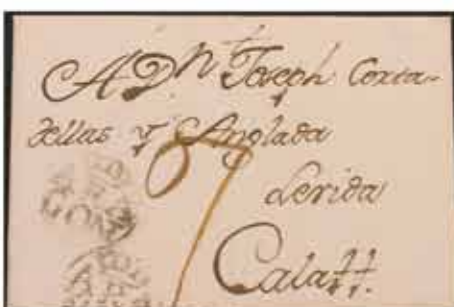 A Dn Joseph Corta-
dellas y Anglada
Lerida
Cala
7